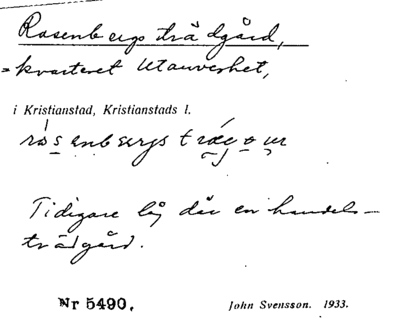 Rosenbergs trädgård,
= kvarteret Utanverket,
i Kristianstad, Kristianstads l.
Tidigare låg där en handels-
trädgård.
Nr 5490.
John Svensson. 1933.